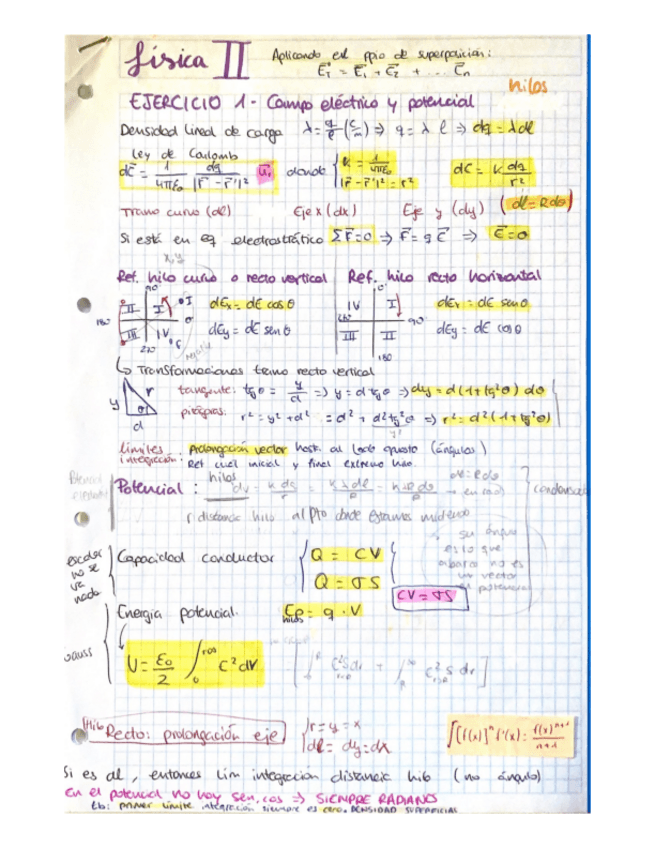 física II Aplicando el ppio de superposición:
E⃗T = E⃗1 + E⃗2 + ... E⃗n
hilos
EJERCICIO 1 - Campo eléctrico y potencial
Densidad lineal de carga λ = q/l (C/m) ⇒ q = λ l ⇒ dq = λ dl
Ley de Coulomb
dE⃗ = 1/4πε₀ dq/|r⃗ - r⃗'|² u⃗r donde { K = 1/4πε₀ |r⃗ - r⃗'|² = r² dE = K dq/r²
Tramo curvo (dl) Eje x (dx) Eje y (dy) (dl = Rdθ)
Si está en eq electrostático ΣF⃗ = 0 ⇒ F⃗ = q E⃗ ⇒ E⃗ = 0
x, y
Ref. hilo curvo o recto vertical Ref. hilo recto horizontal
90° II I 0° dEx = dE cos θ IV I dEx = dE sen θ
180° III IV dEy = dE sen θ III II 90° dEy = dE cos θ
270° 180
↳ Transformaciones tramo recto vertical
y r θ d
tangente: tg θ = y/d ⇒ y = d tg θ ⇒ dy = d (1 + tg²θ) dθ
pitágoras: r² = y² + d² = d² + d² tg²θ ⇒ r² = d² (1 + tg²θ)
límites integración: Prolongación vector hasta al lado opuesto (ángulos)
Ref cual inicial y final extremo hilo.
hilos dl = Rdθ
Potencial: dV = K dq/r = K λ dl/r
r distancia hilo al pto donde estamos midiendo
su ángulo
es lo que
abarca no es
un vector
potencial
escalar
no se
va
nada
Capacidad conductor { Q = CV
Q = σS
CV = σS
Energía potencial. Ep = q · V
hilos
gauss
U = ε₀/2 ∫₀^∞ E² dV
Hilo Recto: prolongación eje { r = y = x
dl = dy = dx
∫[f(x)]ⁿ f'(x) = f(x)ⁿ⁺¹/n+1
Si es dl, entonces lim integracion distancia hilo (no ángulo)
En el potencial no hay sen, cos ⇒ SIEMPRE RADIANES
primer límite integración siempre es cero. DENSIDAD SUPERFICIAL